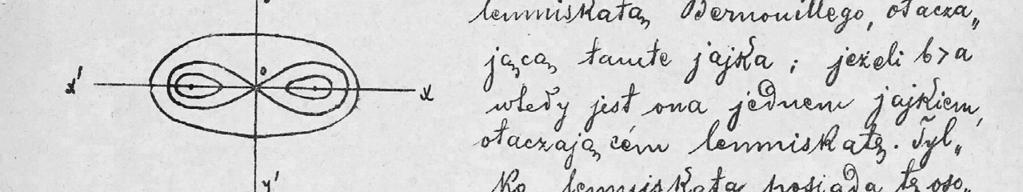 lemniskatą Bernouillego, otacza„
x' o x jącą tamte jajka ; jeżeli b>a
wtedy jest ona jednem jajkiem,
otaczającém lemniskatę. Tyl„
y' ko lemniskata posiada tę oso„